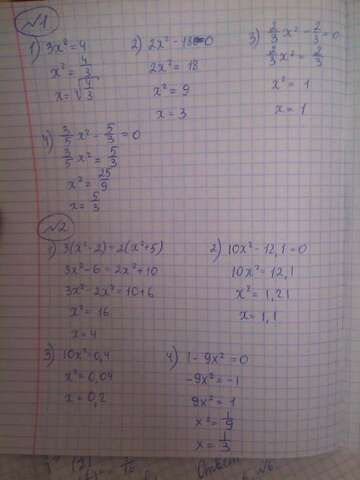 №1
1) 3x² = 4
x² = 4/3
x = √4/3
2) 2x² - 18 = 0
2x² = 18
x² = 9
x = 3
3) 2/3 x² - 2/3 = 0
2/3 x² = 2/3
x² = 1
x = 1
4) 3/5 x² - 5/3 = 0
3/5 x² = 5/3
x² = 25/9
x = 5/3
№2
1) 3(x²-2) = 2(x²+5)
3x² - 6 = 2x² + 10
3x² - 2x² = 10 + 6
x² = 16
x = 4
2) 10x² - 12,1 = 0
10x² = 12,1
x² = 1,21
x = 1,1
3) 10x² = 0,4
x² = 0,04
x = 0,2
4) 1 - 9x² = 0
-9x² = -1
9x² = 1
x² = 1/9
x = 1/3
Ответ
№6.